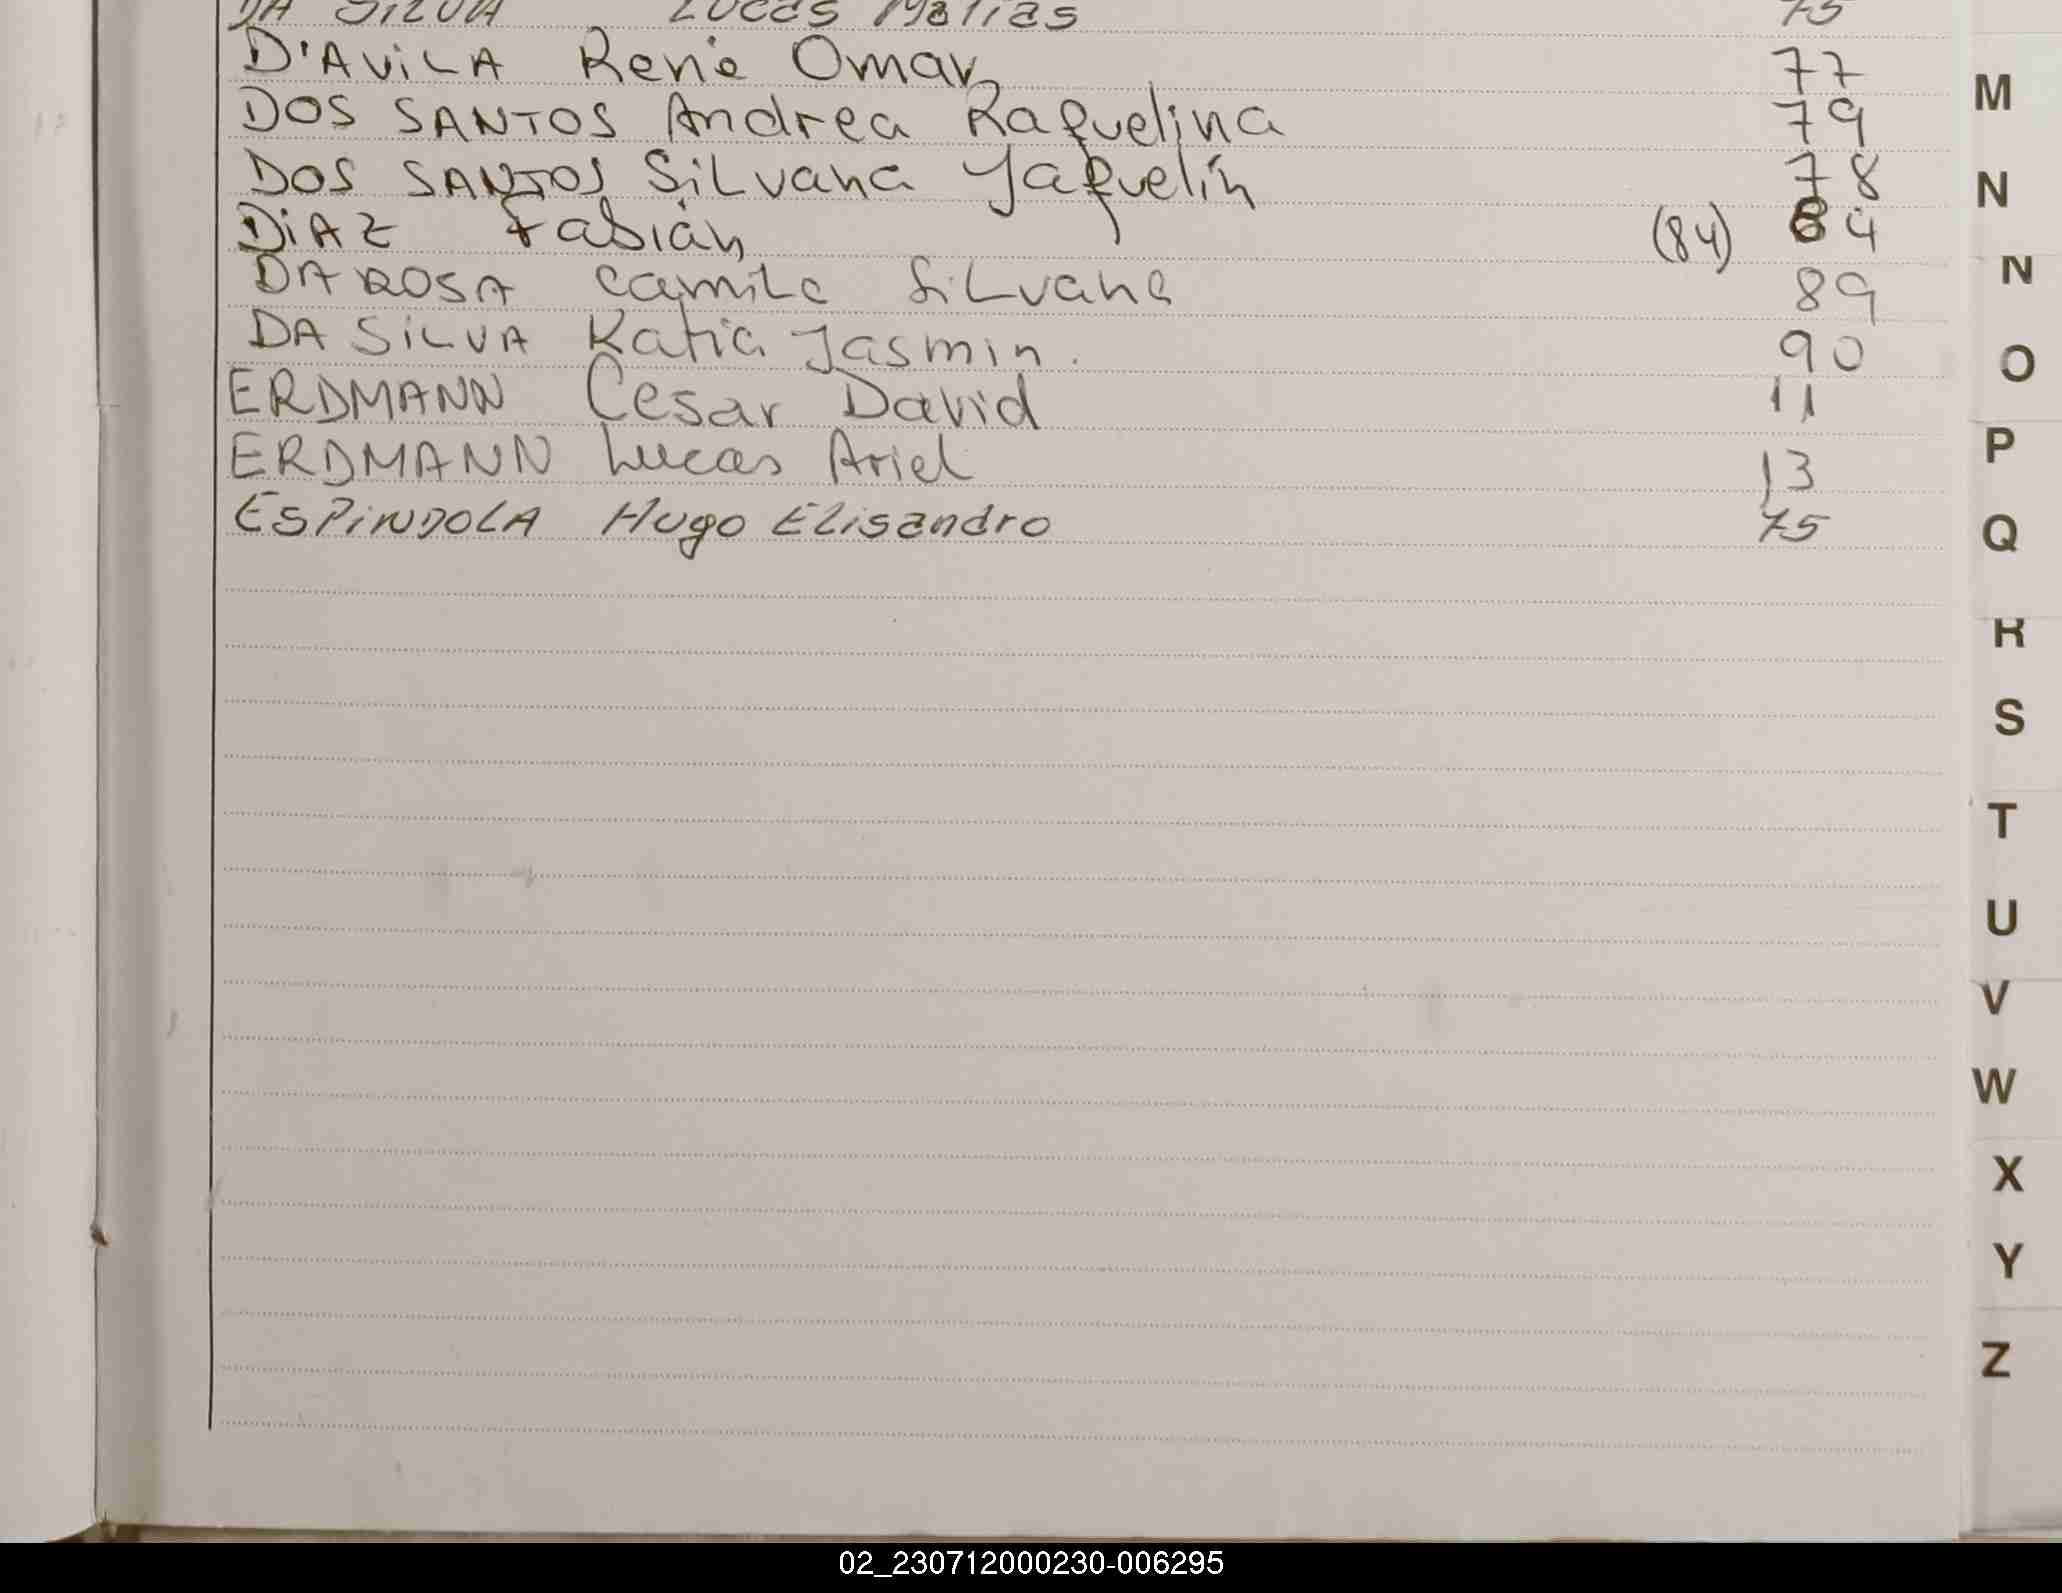 DA SILVA Lucas Matias 75
D'AViLA René Omar 77
DOS SANTOS Andrea Raquelina 79
DOS SANTOS SiLvana Yaquelín 78
DiAZ Fabián (84) 84
DA ROSA Camila SiLvana 89
DA SiLVA Katia Jasmin. 90
ERDMANN Cesar David 11
ERDMANN Lucas Ariel 13
ESPiNDOLA Hugo Elisandro 75
M
N
N
O
P
Q
R
S
T
U
V
W
X
Y
Z
02_230712000230-006295